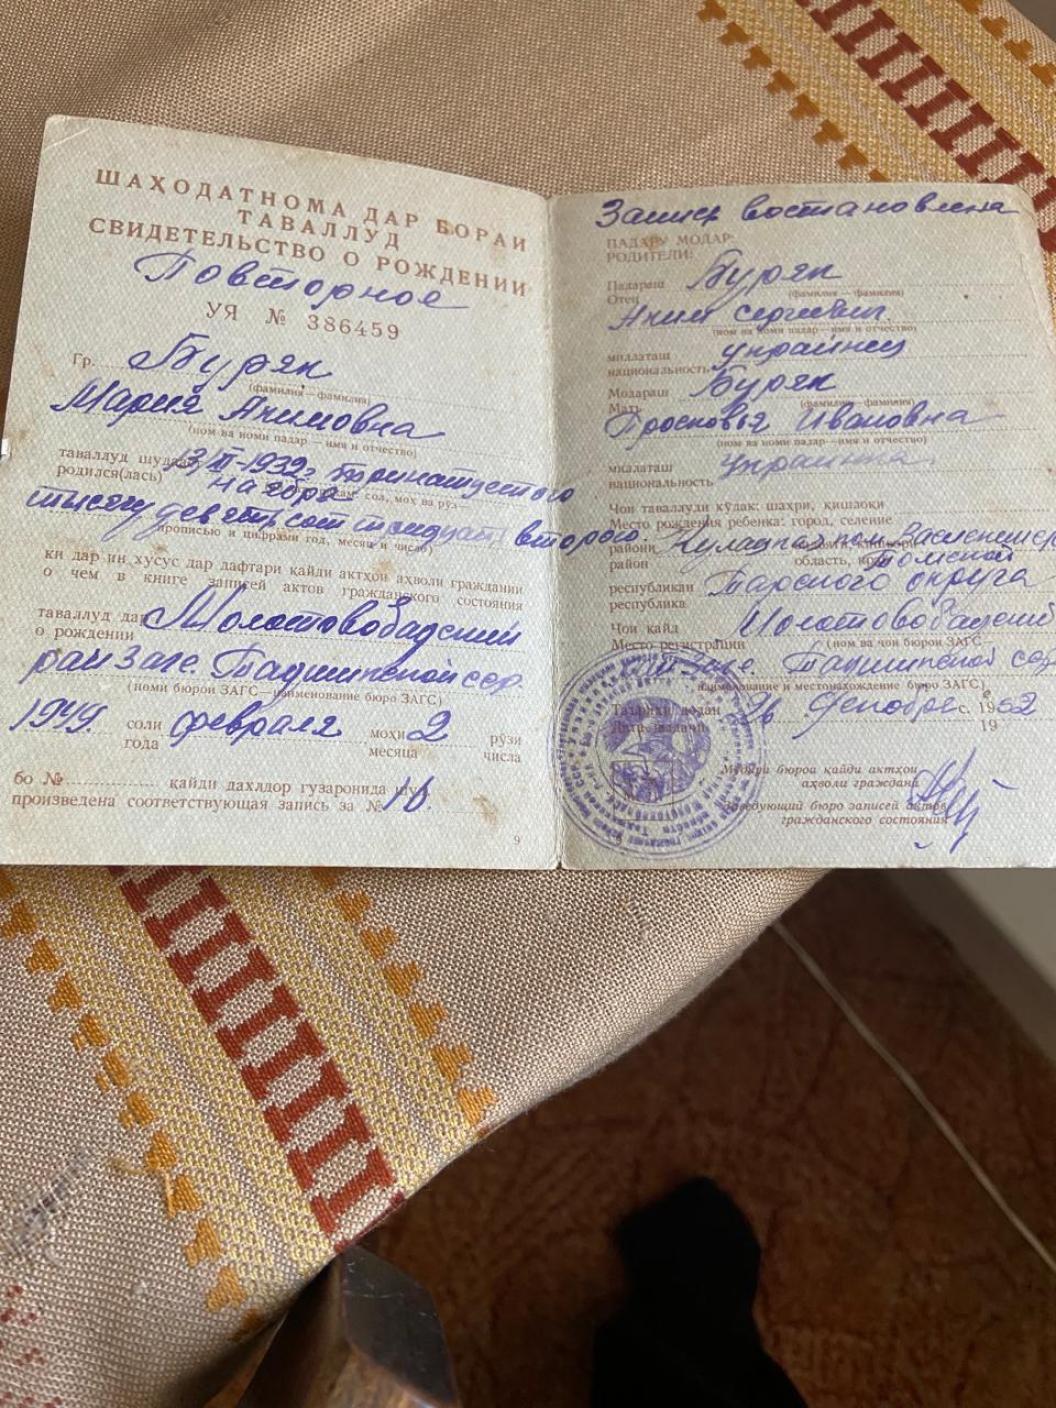 ШАҲОДАТНОМА ДАР БОРАИ
ТАВАЛЛУД
СВИДЕТЕЛЬСТВО О РОЖДЕНИИ
Повторное
УЯ № 386459
Гр. Буряк
(фамилия—фамилия)
Мария Акимовна
(ном ва номи падар—имя и отчество)
таваллуд
родился(лась)
-1932г. тринатцетого
наября
тысячу девятьсот тридцать второго
прописью и цифрами год, месяц и число)
ки дар ин хусус дар дафтари қайди актҳои аҳволи граждании
о чем в книге записей актов гражданского состояния
таваллуд дар Молотовободский
о рождении
рай Загс. Таджикской сср.
(номи бюрои ЗАГС—наименование бюро ЗАГС)
1944. соли февраля моҳи 2 рӯзи
года месяца числа
бо № қайди дахлдор гузаронида
произведена соответствующая запись за №
9
Запись востановлена
ПАДАРУ МОДАР-
РОДИТЕЛИ:
Падараш Буряк
Отец (фамилия—фамилия)
Аким Сергеевич
(ном ва номи падар—имя и отчество)
миллаташ украинец
национальность
Модараш Буряк
Мать (фамилия—фамилия)
Просковья Ивановна
(ном ва номи падар—имя и отчество)
миллаташ украинка
национальность
Ҷои таваллуди кӯдак: шаҳри, қишлоқи
Место рождения ребенка: город, селение
райони
район область, Томской
республикаи Тарского округа
республика
Ҷои қайд Молотовободский
Место регистрации (ном ва ҷои бюрои ЗАГС—
Загс. Таджикской сср
наименование и местонахождение бюро ЗАГС)
26 декабря с. 1952
19
Мудири бюрои қайди актҳои
аҳволи граждани
Заведующий бюро записей актов
гражданского состояния